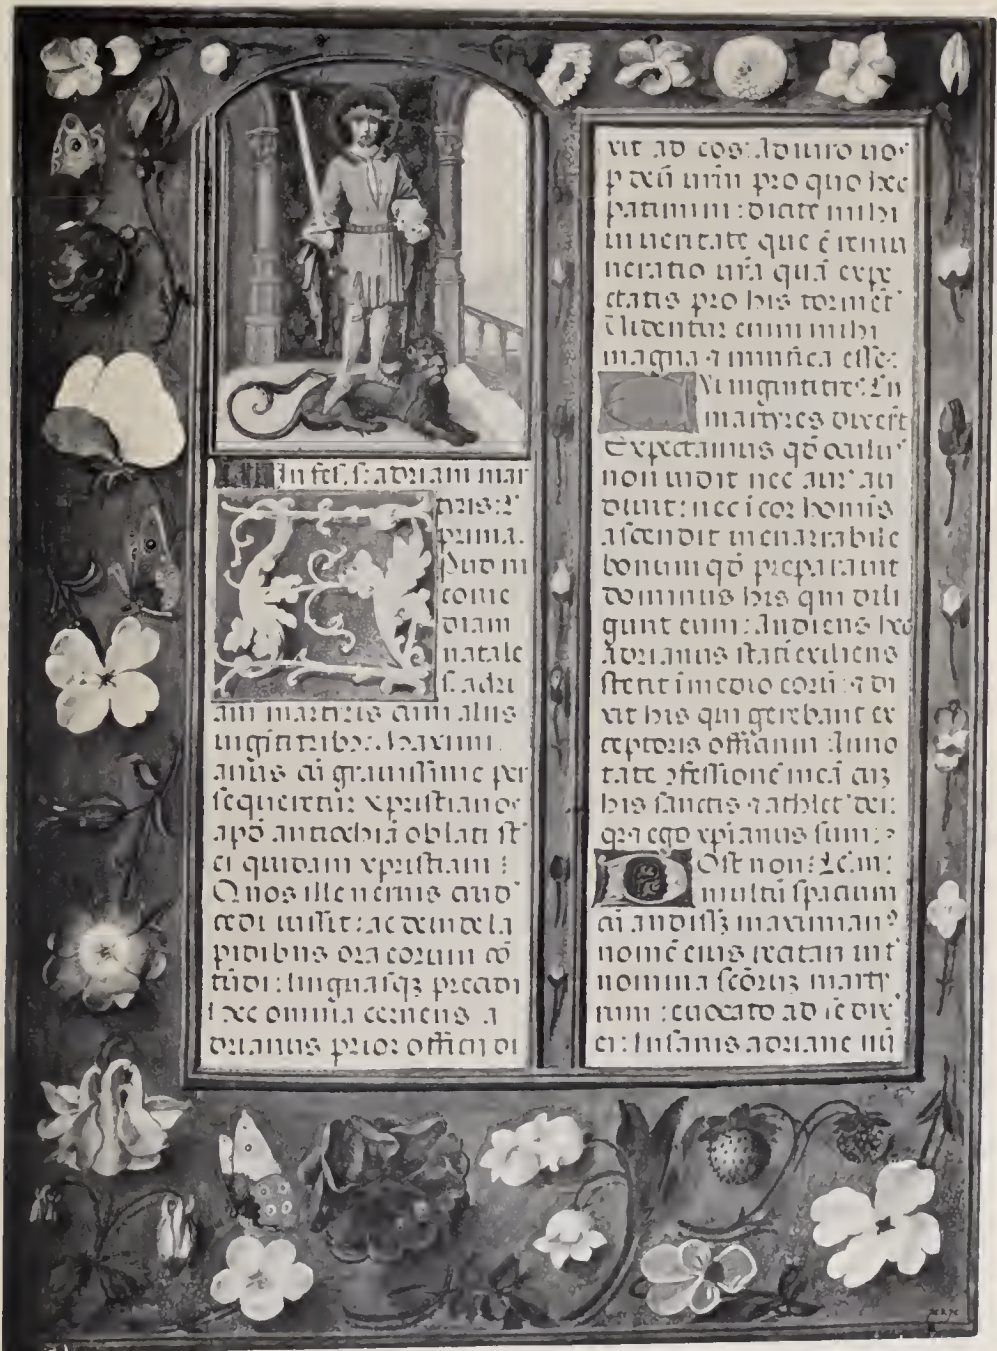 In fes. s. adriani mar
tiris: Lc
prima.
Apud ni
come
diam
natale
s. adri
ani martiris cum aliis
uigintitribꝫ. Maximi
anus cū grauissime per
sequeretur xpristianos
apd̄ antiochiā oblati st̄
ei quidam xpristiani:
Quos ille neruis crud'
cedi iussit: ac deinde la
pidibus ora eorum cō
tūdi: linguasqꝫ precidi
hec omnia cernens a
drianus prior officii di
xit ad eos: Adiuro uos
p deū urm̄ pro quo hec
patimini: dicite mihi
in ueritate que ē remu
neratio ur̄a quā expe
ctatis pro his tormēt'
uidentur enim mihi
magna ⁊ munifica esse:
Uigintitres: Lc̄ ii
martyres dixer̄t
Expectamus qd̄ oculus
non uidit nec aur' au
diuit: nec i cor homīs
ascendit inenarrabile
bonum qd̄ preparauit
dominus his qui dili
gunt eum: Audiens hec
Adrianus statī exiliens
stetit ī medio eorū: ⁊ di
xit his qui gerebant ex
ceptoris officium: Anno
tate ꝯfessionē meā cuꝫ
his sanctis ⁊ athlet' dei:
qꝛ ego xp̄ianus sum:
Post non: Lc̄ iii:
multū spacium
cū audissꝫ maximian'
nomē eius recitari int'
nomina scōrꝫ marty
rum: euocato ad se dix'
ei: Insanis adriane nū